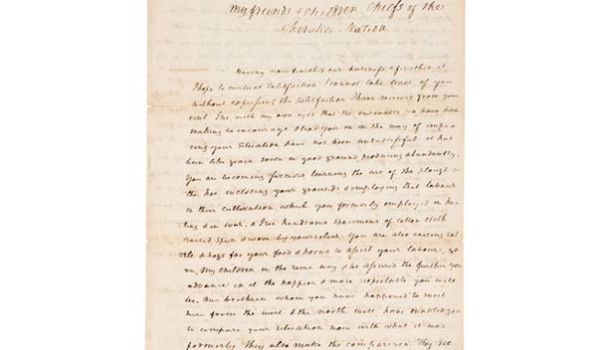 My friends & children, Chiefs of the
Cherokee Nation
Having now finished our business & finished it
I hope to mutual satisfaction I cannot take leave of you
without expressing the satisfaction I have received from your
visit. I see with my own eyes that the endeavors we have been
making to encourage & lead you on in the way of impro
ving your situation have not been unsuccessful. it has
been like grain sown in good ground producing abundantly.
You are becoming farmers learning the use of the plough &
the hoe, enclosing your grounds & employing that labour
in their cultivation which you formerly employed in hun
ting & in war. & I see handsome specimens of cotton cloth
raised spun & wove by yourselves. You are also raising cat
tle & hogs for your food & horses to assist your labours. go
on, my children in the same way & be assured the further you
advance in it the happier & more respectable you will
be. Our brethren whom you have happened to meet
here from the west & the north west have enabled you
to compare your situation now with what it was
formerly. They also make the comparison. They see